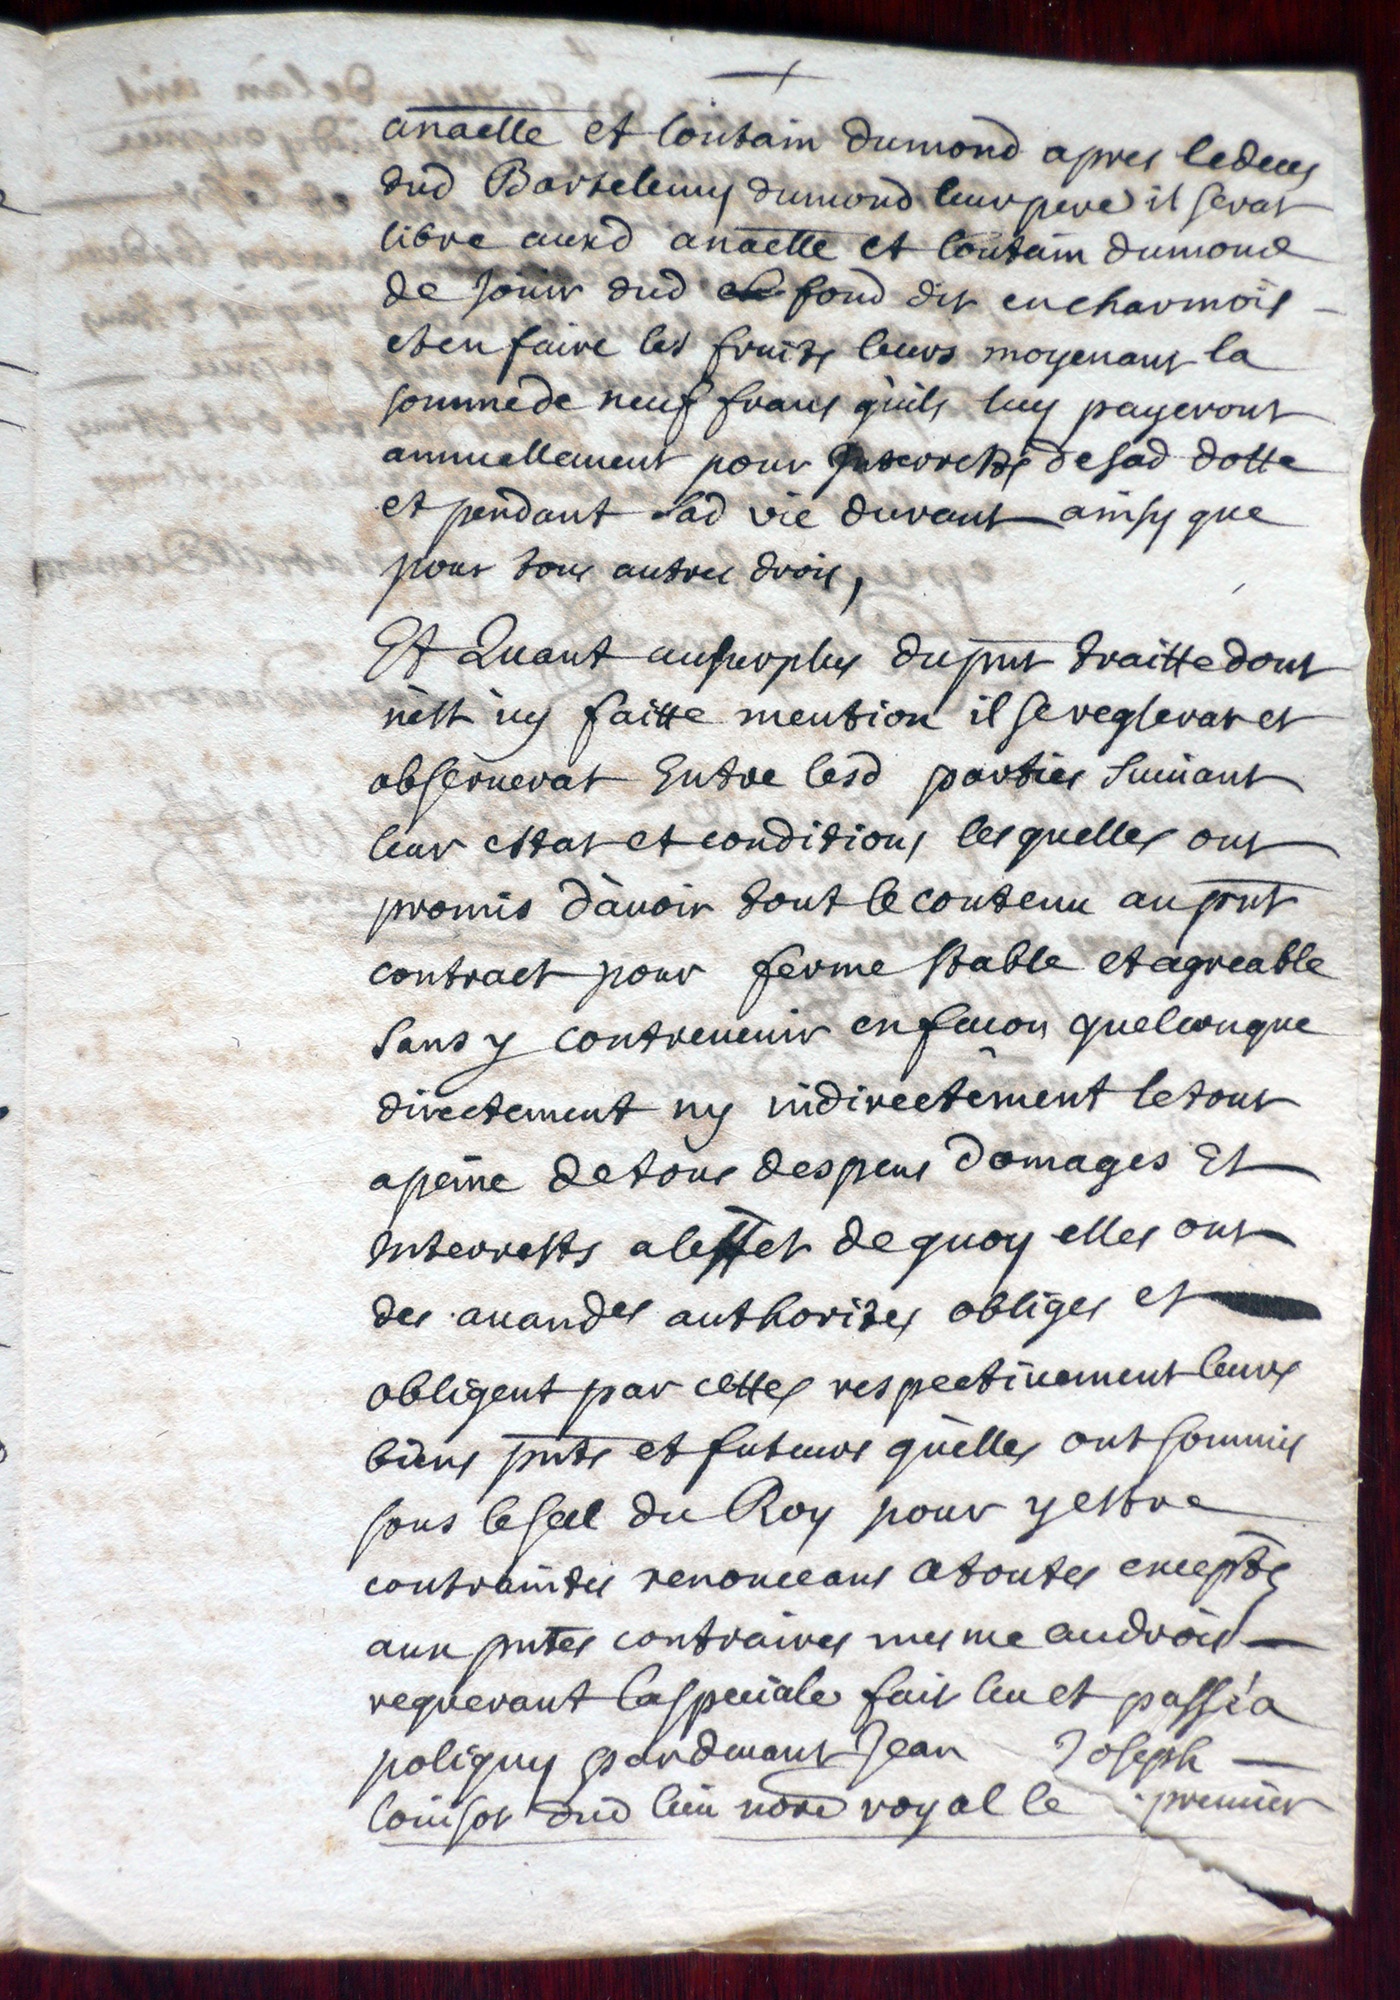 anaelle et loutain dumond apres ledeces
dud Barthelemy dumond leur pere il serat
libre auxd anaelle et loutain dumond
de jouir dud fond dit en charmois
et en faire les fruits leurs moyenant la
somme de neuf frans quils luy payeront
annuellement pour Interrests de sad dotte
et pendant sad vie durant ainsy que
pour tous autres drois,
Et Quant au surplus du pnt traitte dont
nest icy faitte mention il se reglerat et
obseruerat Entre lesd parties suiuant
leur estat et conditions lesquelles ont
promis dàuoir tout le contenu au pnt
contract pour ferme stable et agreable
sans y contreuenir en facon quelconque
directement ny indirectement le tout
a peine de tous despens domages Et
Interrests a leffet de quoy elles ont
des auandes authorites obliges et
obligent par cettes respectiuement leurs
biens pnts et futeurs quèlles ont soummis
sous le seel du Roy pour y estre
contraintes renonceans a toutes exceptōs
aux pntes contraires mesme au drois
requerant la speciale fait leu et passé a
poligny pardeuant Jean Joseph
louisot dud lieu nore royal le premier